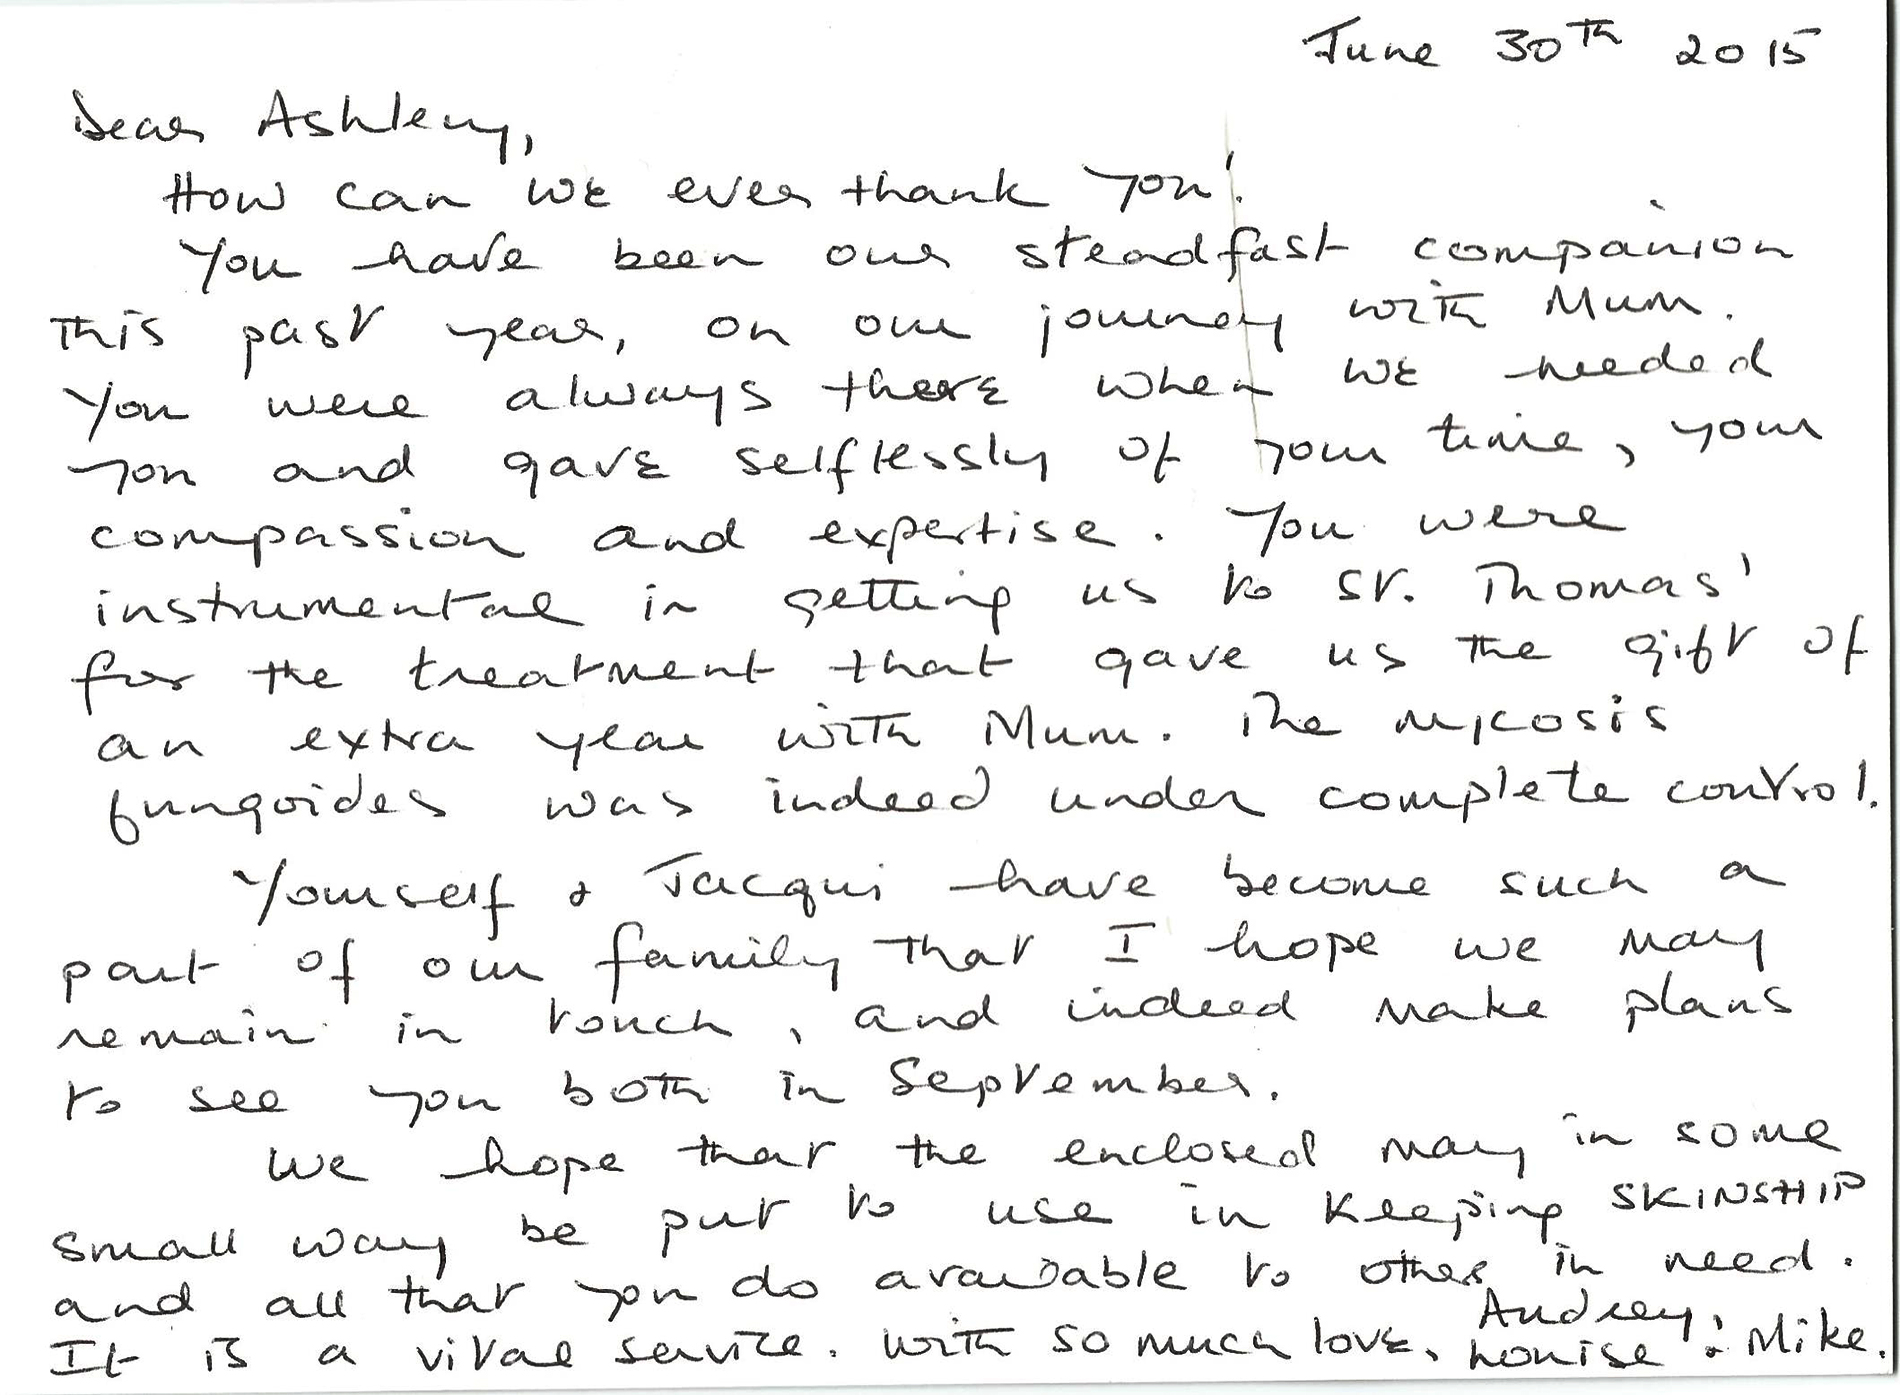 June 30th 2015
Dear Ashleny,
How can we ever thank you!
You have been our steadfast companion
this past year, on our journey with Mum.
You were always there when we needed
you and gave selflessly of your time, your
compassion and expertise. You were
instrumental in getting us to St. Thomas'
for the treatment that gave us the gift of
an extra year with Mum. The mycosis
fungoides was indeed under complete control.
Yourself & Jacqui have become such a
part of our family that I hope we may
remain in touch, and indeed make plans
to see you both in September.
We hope that the enclosed may in some
small way be put to use in keeping SKINSHIP
and all that you do available to others in need.
It is a vital service. With so much love, Audrey,
Louise & Mike.